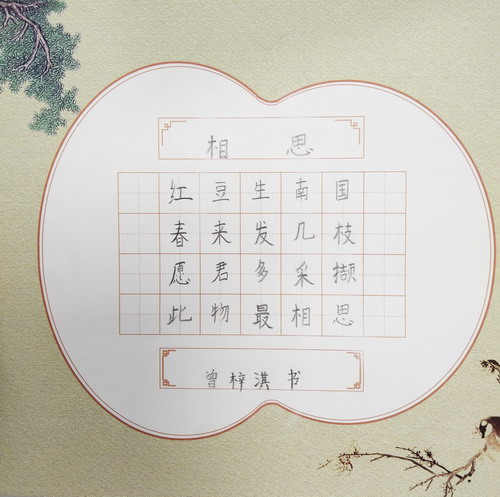 相思
红豆生南国
春来发几枝
愿君多采撷
此物最相思
曾梓淇书